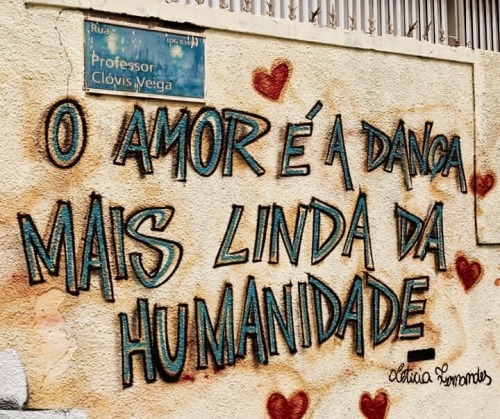 Rua
Professor
Clóvis Veiga
O AMOR É A DANÇA
MAIS LINDA DA
HUMANIDADE
Leticia Fernandes